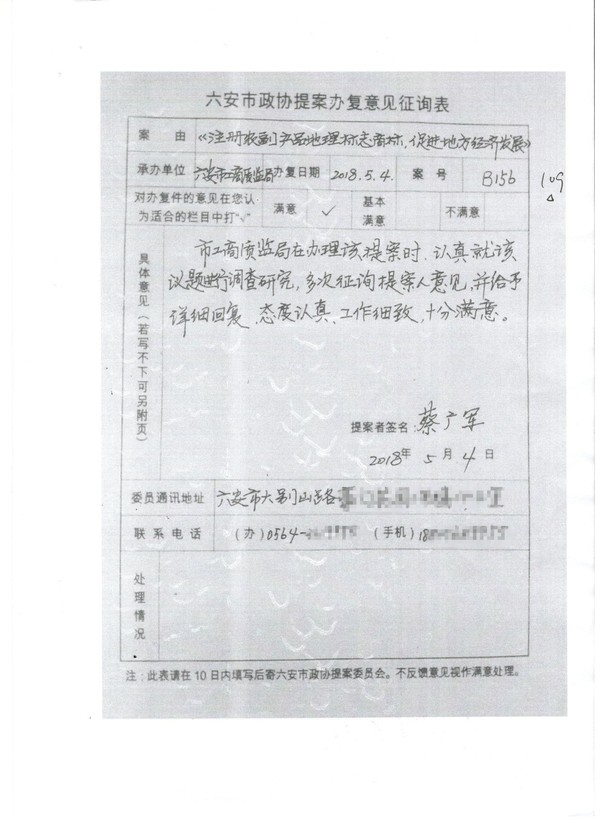 六安市政协提案办复意见征询表
案由 《注册农副产品地理标志商标,促进地方经济发展》
承办单位 六安市工商质监局 办复日期 2018.5.4. 案号 B156 109
对办复件的意见在您认为适合的栏目中打"√" 满意 √ 基本满意 不满意
具体意见(若写不下可另附页)
市工商质监局在办理该提案时、认真就该
议题进行调查研究,多次征询提案人意见,并给予
详细回复、态度认真、工作细致,十分满意。
提案者签名:蔡广军
2018年 5 月 4 日
委员通讯地址 六安市大别山路
联系电话 (办)0564- (手机)18
处理情况
注:此表请在10日内填写后寄六安市政协提案委员会。不反馈意见视作满意处理。